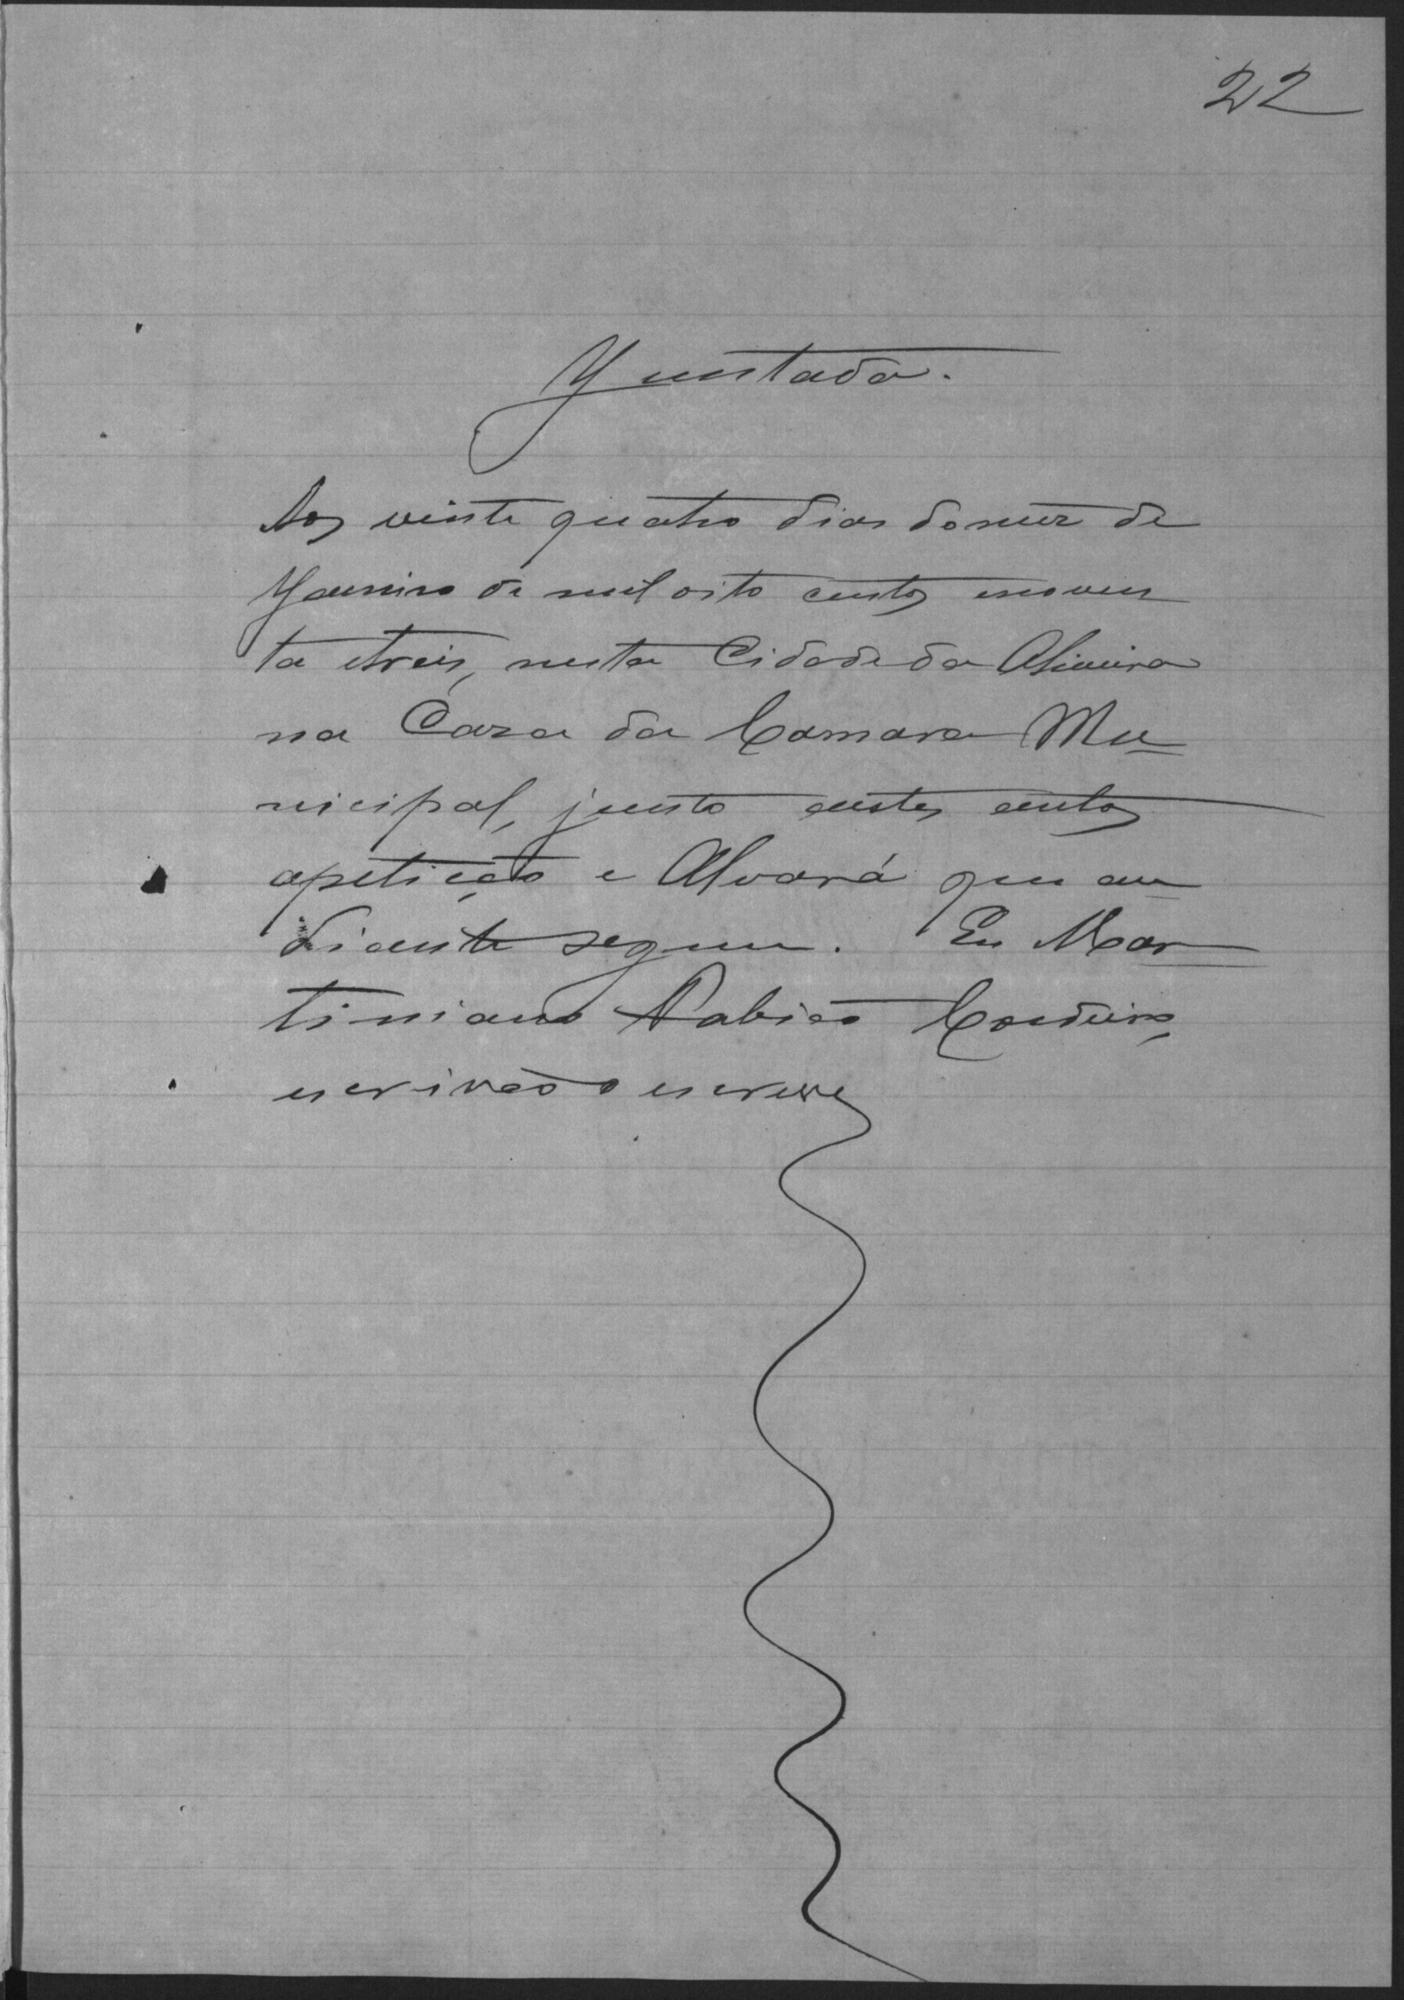 22
Yuntada.
Aos vinte quatro dias do mez de
Yaneiro de mil oito centos enoven
ta etreis, nesta Cidade da Oliveira
na Caza da Camara Mu=
nicipal, junto aestes autos
apetição e Alvará que au
diante seguem. Eu Mar=
tiniano Cordeiro,
escrivão o escrevy